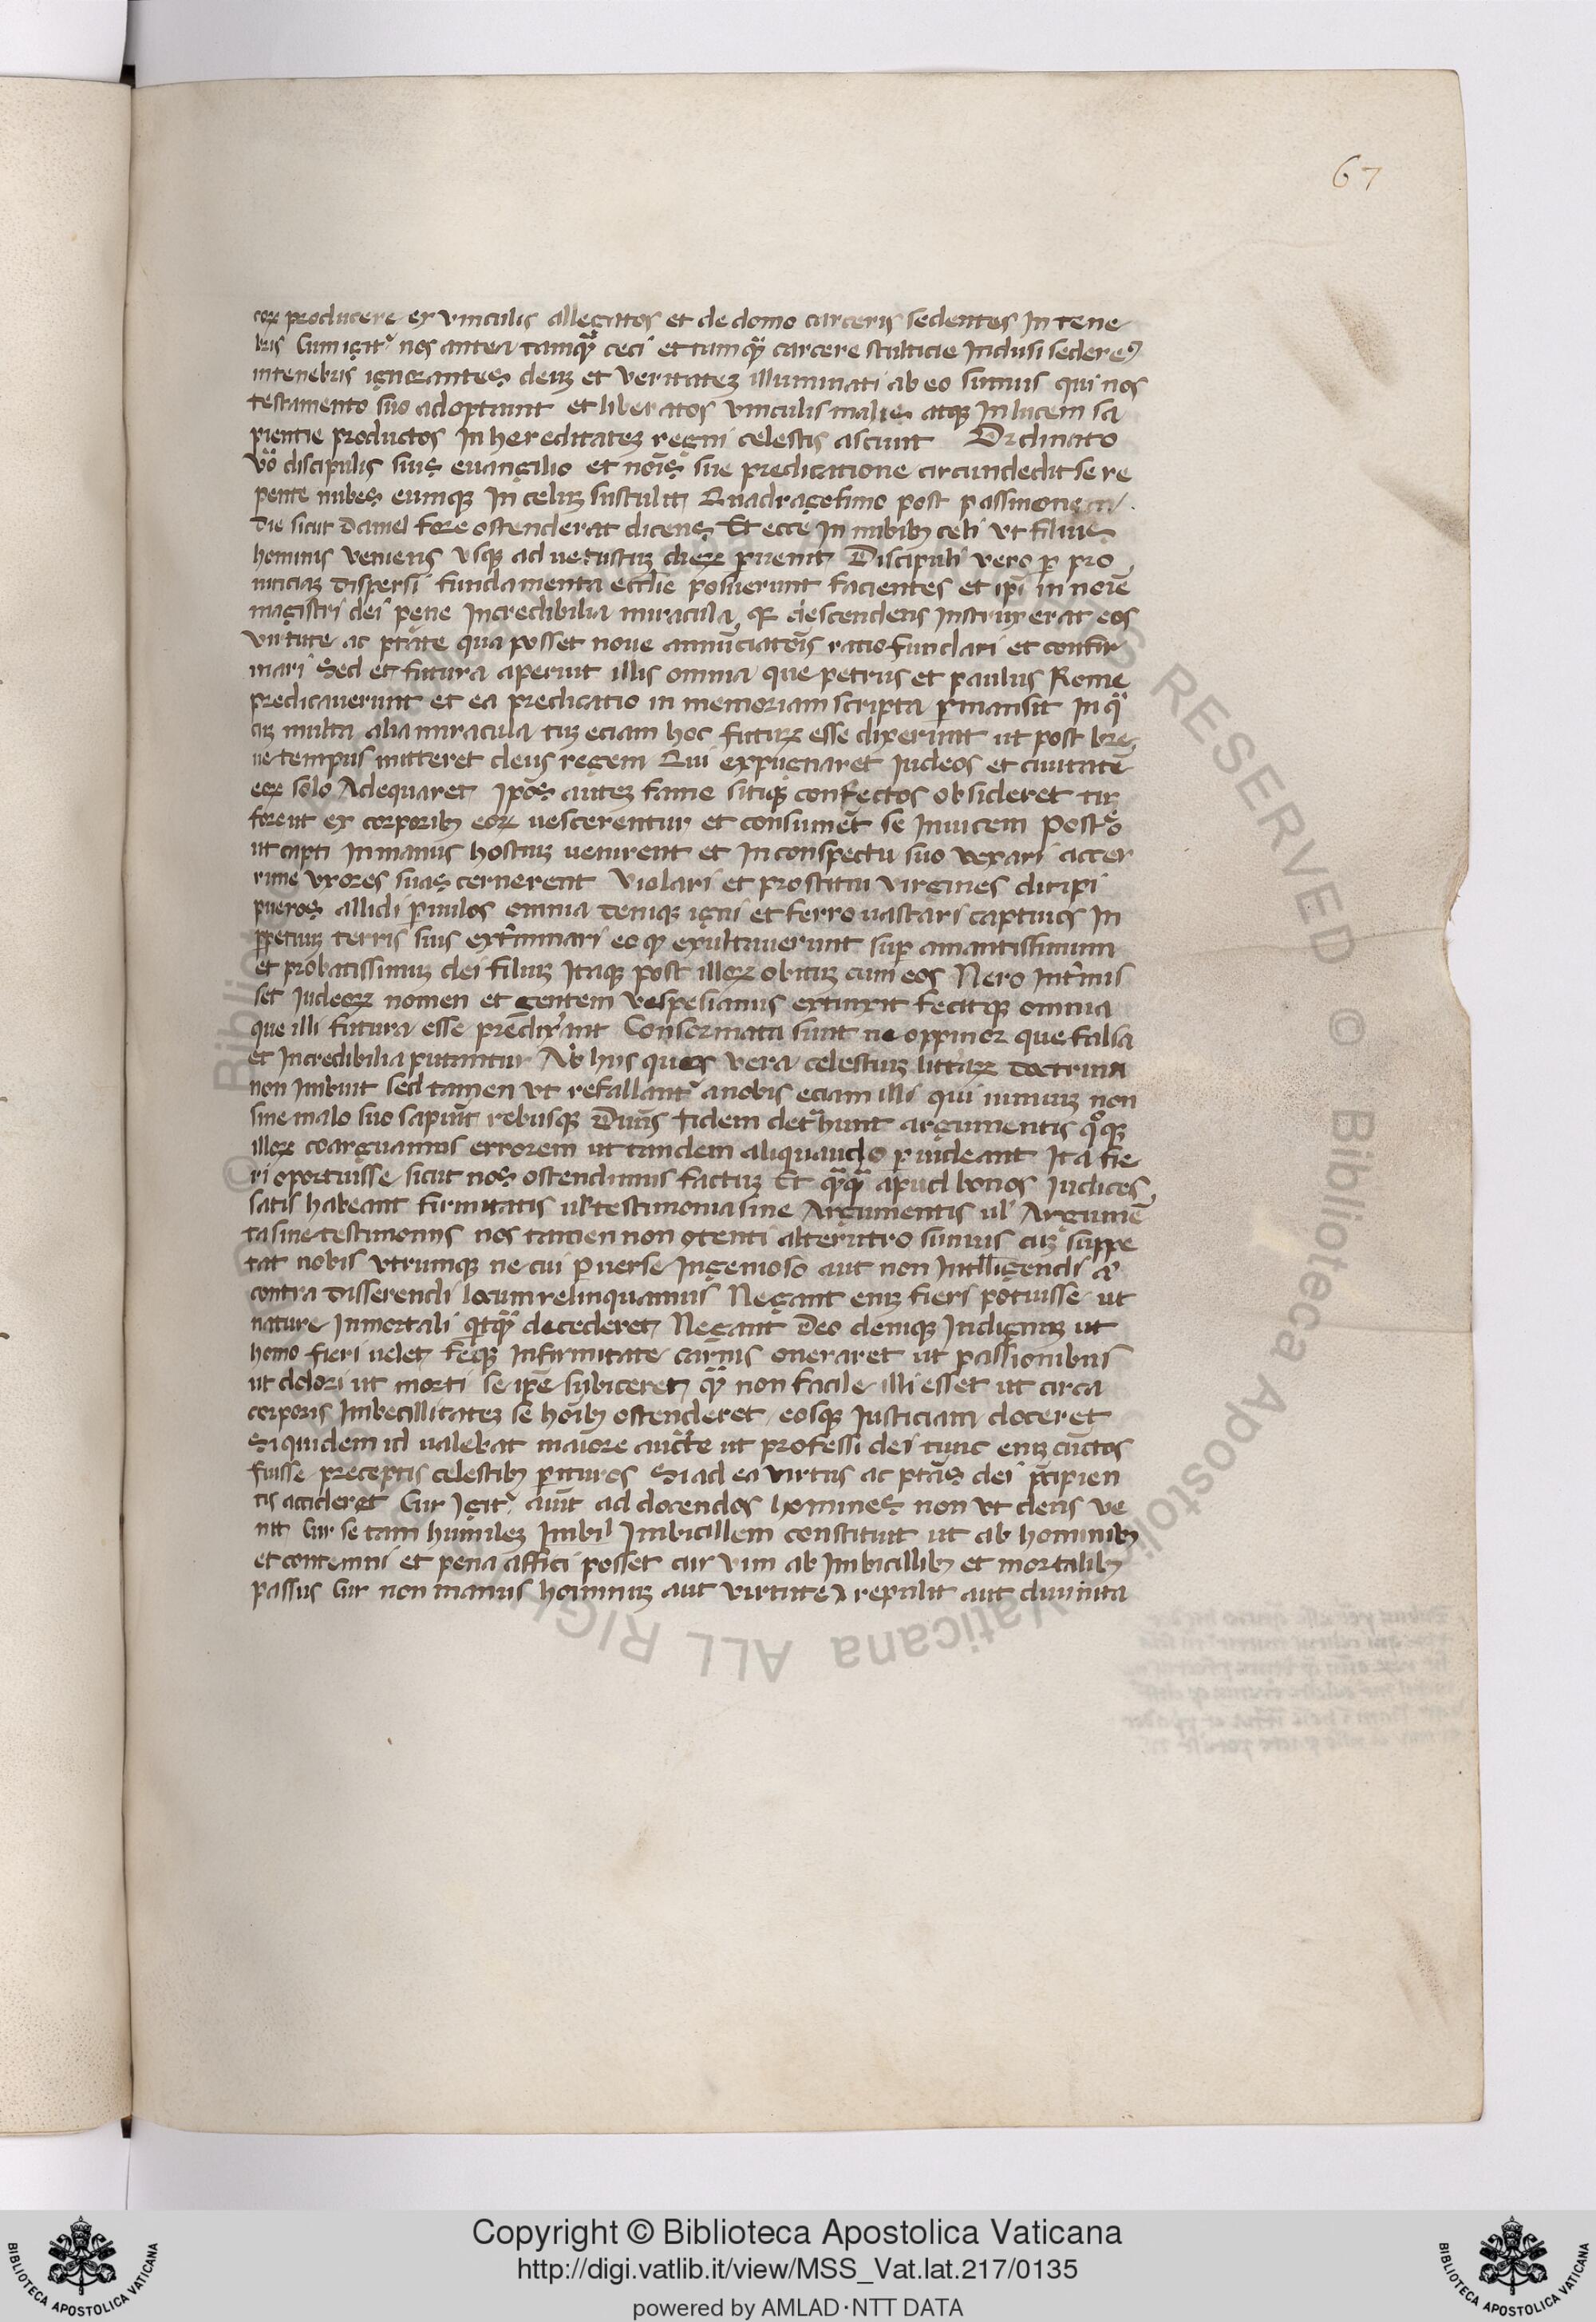 67
coꝝ producere ex vinculis allegatos et de domo carceris sedentes In tene
bris Cum igitᷣ nos antea tamqᷓ ceci et tamqᷓ carcere stulticie Inclusi sederemꝰ
intenebris ignorantes deuȝ et veritateȝ illuminati ab eo sumus qui nos
testamento suo adoptauit et liberatos vinculis malis atqȝ In lucem sa
pientie productos In hereditateȝ regni celestis asciuit Ordinato
vo᷒ discipulis suis euangilio et no᷒is sue predicatione circundedit se re
pente nubes eumqȝ In celuȝ sustulit Quadragesimo post passionem
Die sicut Daniel fore ostenderat dicens Et ecce In nubibȝ celi vt filius
hominis veniens vsqȝ ad uetustuȝ dieꝝ ꝑuenit Discipuli vero ꝑ pro
uinciaȝ dispersi fundamenta eccl̄ie posuerunt facientes et ip̄i in noīe
magistri dei pene Incredibilia miracula qꝛ descendens Instruxerat eos
virtute ac ptāte qua posset noue annūciatōis ratio fundari et confir
mari Sed et futura aperuit illis omnia que petrus et paulus Rome
predicauerunt et ea predicatio in memoriam scripta ꝑmansit In qᷓ
cuȝ multa alia miracula tuȝ eciam hoc futuꝝ esse dixerunt ut post bre
ue tempus mitteret deus regem Qui expugnaret Iudeos et ciuitatē
eoꝝ solo Adequaret Ip̄os auteȝ fame sitiqȝ confectos obsideret tuȝ
forent ex corporibȝ eoꝝ uescerentur et consumēt se Inuicem Postᷣo
ut capti In manus hostiuȝ uenirent et In conspectu suo vexari accer
rime vxores suas cernerent violari et prostitui virgines diripi
pueros allidi ꝑuulos omnia deniqȝ igni et ferro uastari captiuos In
ꝑpetuuȝ terris suis extᷣminari eo qꝫ exultauerunt suꝑ amantissimum
et probatissimuȝ dei filiuȝ Itaqȝ post illoꝝ obituȝ cum eos Nero Intᷣmis
set Iudeoꝝ nomen et gentem vespesianus extinxit fecitqȝ omnia
que illi futura esse prēdixᷣant Consormata sunt ne oppinor que falsa
et Incredibilia putantur Ab hiis quos vera celestiuȝ littaꝝ doctrina
non Imbuit sed tamen vt refallantᷣ anobis eciam illi qui nimiuȝ non
sine malo suo sapiūt rebusqȝ Diuīs fidem detᷣhunt argumentis qᵒqȝ
illoꝝ coarguamus errorem ut tandem aliquando ꝑuideant Ita fie
ri oportuisse sicut nos ostendimus factuȝ Et qᷓqᷓ apud bonos Iudices
satis habeant firmitatis ul' testimonia sine Argumentis ul' Argumē
ta sine testimoniis nos tamen non ꝯtenti alterutro sumus cuȝ suppe
tat nobis vtrumqȝ ne cui ꝑuerse Ingenioso aut non Intelligendi aᷣ
contra disserendi locum relinquamus Negant eniȝ fieri potuisse ut
nature Inmortali qitqᷓ decederet Negant Deo deniqȝ Indignuȝ ut
homo fieri uelet seqȝ Infirmitate carnis oneraret ut passionibus
ut dolori ut morti se ip̄e sybiceret qᷓ non facile illi esset ut circa
corporis Imbecillitateȝ se hoībȝ ostenderet eosqȝ Iusticiam doceret
Siquidem id ualebat maiore auctᷣte ut professi dei tunc eniȝ cūctos
fuisse preceptis celestibȝ ꝑituros Si ad ea virtus ac ptās dei p̄cipien
tis accideret Cur Igitᷣ aiūt ad docendos homines non vt deus ve
nit Cur se tam humileȝ Imbil Imbicillem constituit ut ab hominibȝ
et contemni et pena affici posset cur vim ab Imbicillibȝ et mortalibȝ
passus Cur non manus hominuȝ aut virtute repulit aut diuinita
Copyright © Biblioteca Apostolica Vaticana
http://digi.vatlib.it/view/MSS_Vat.lat.217/0135
powered by AMLAD·NTT DATA
BIBLIOTECA APOSTOLICA VATICANA
BIBLIOTECA APOSTOLICA VATICANA
© Biblioteca Apostolica Vaticana ALL RIGHTS RESERVED